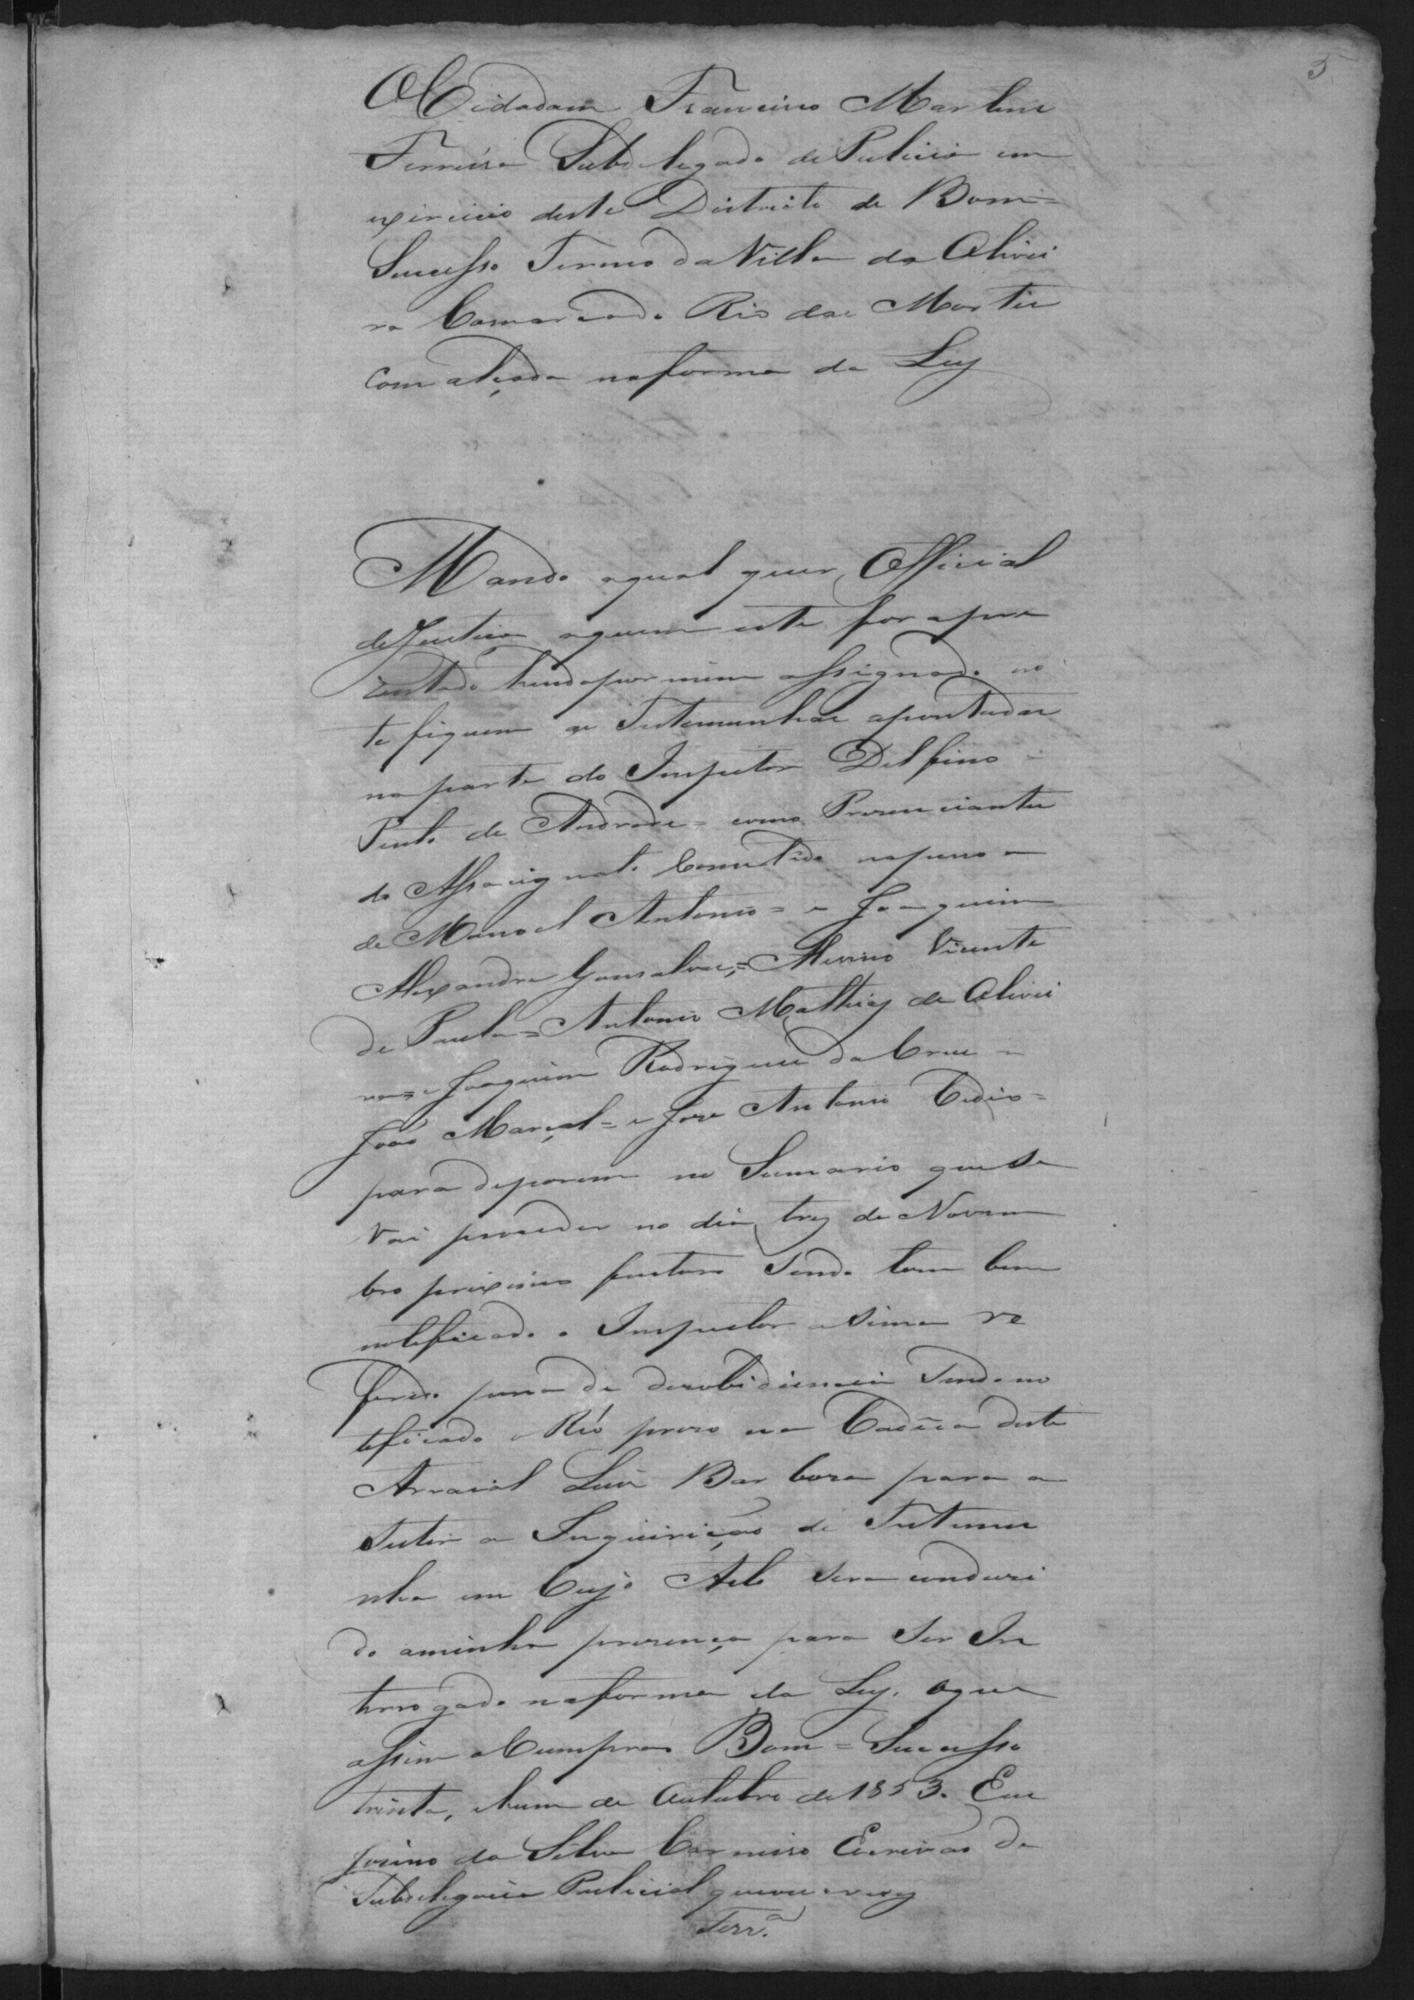 5
O Cidadam Francisco Martins
Ferreira Subdelegado de Pulicia em
exircicio deste Distrito de Bom=
Sucesso Termo da Villa da Olivei
ra Comarca do Rio das Mortes
com alçada naforma da Ley
Mando aqual quer Official
deJustica aquem este for apre
zentado hindo por mim assignado no
tefiquem as Testemunhas apontadas
na parte do Inspetor Delfino
Pinto de Andrade = como Prezenciantes
do Assacignato Cometido napessoa
de Manoel Antonio = e Joaquim
Alexandre Gonsalves, =  Vicente
de Paula = Antonio Mathias de Olivei
ra = e Joaquim Rodrigues da Crus =
João Marçal = e Joze Antonio =
para deporem no Sumario que se
vai proceder no dia trez de Novem
bro proximo futuro Sendo tam bem
notificado o Inspector asima re
ferido pena de dezobidiencia Sendo no
tificado o Réo prezo na Cadêia deste
Arraial Luis Barboza para a
Sistir a Inquirição de Testemu
nha em Cujo Acto sera conduzi
do aminha prezença para Ser In
terrogado naforma da Ley. oque
assim Cumpra Bom = Sucesso
trinta, ehum de Outubro de 1853. Eu
 da Silva Escrivão da
Subdelegacia Pulicial que escrevy
Ferr.ª